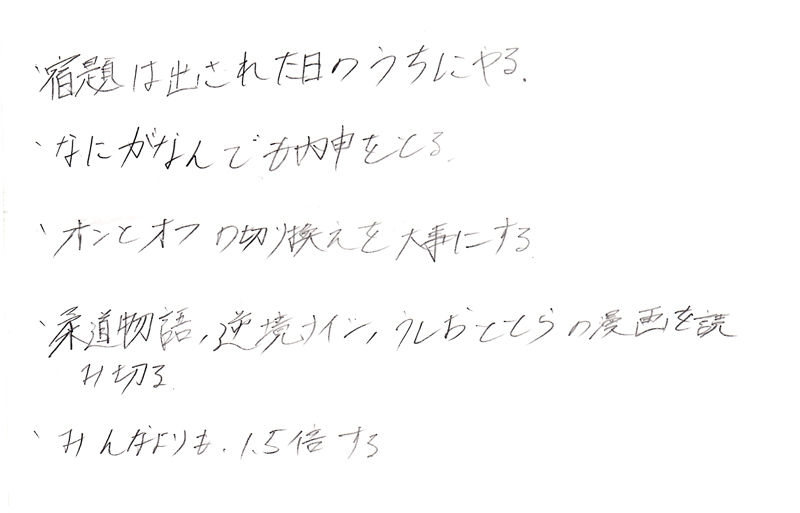 、宿題は出された日のうちにやる.
、なにがなんでも内申をとる.
、オンとオフの切り換えを大事にする
、柔道物語,逆境ナイン,うしおととらの漫画を読
み切る.
、みんなよりも.1.5倍する